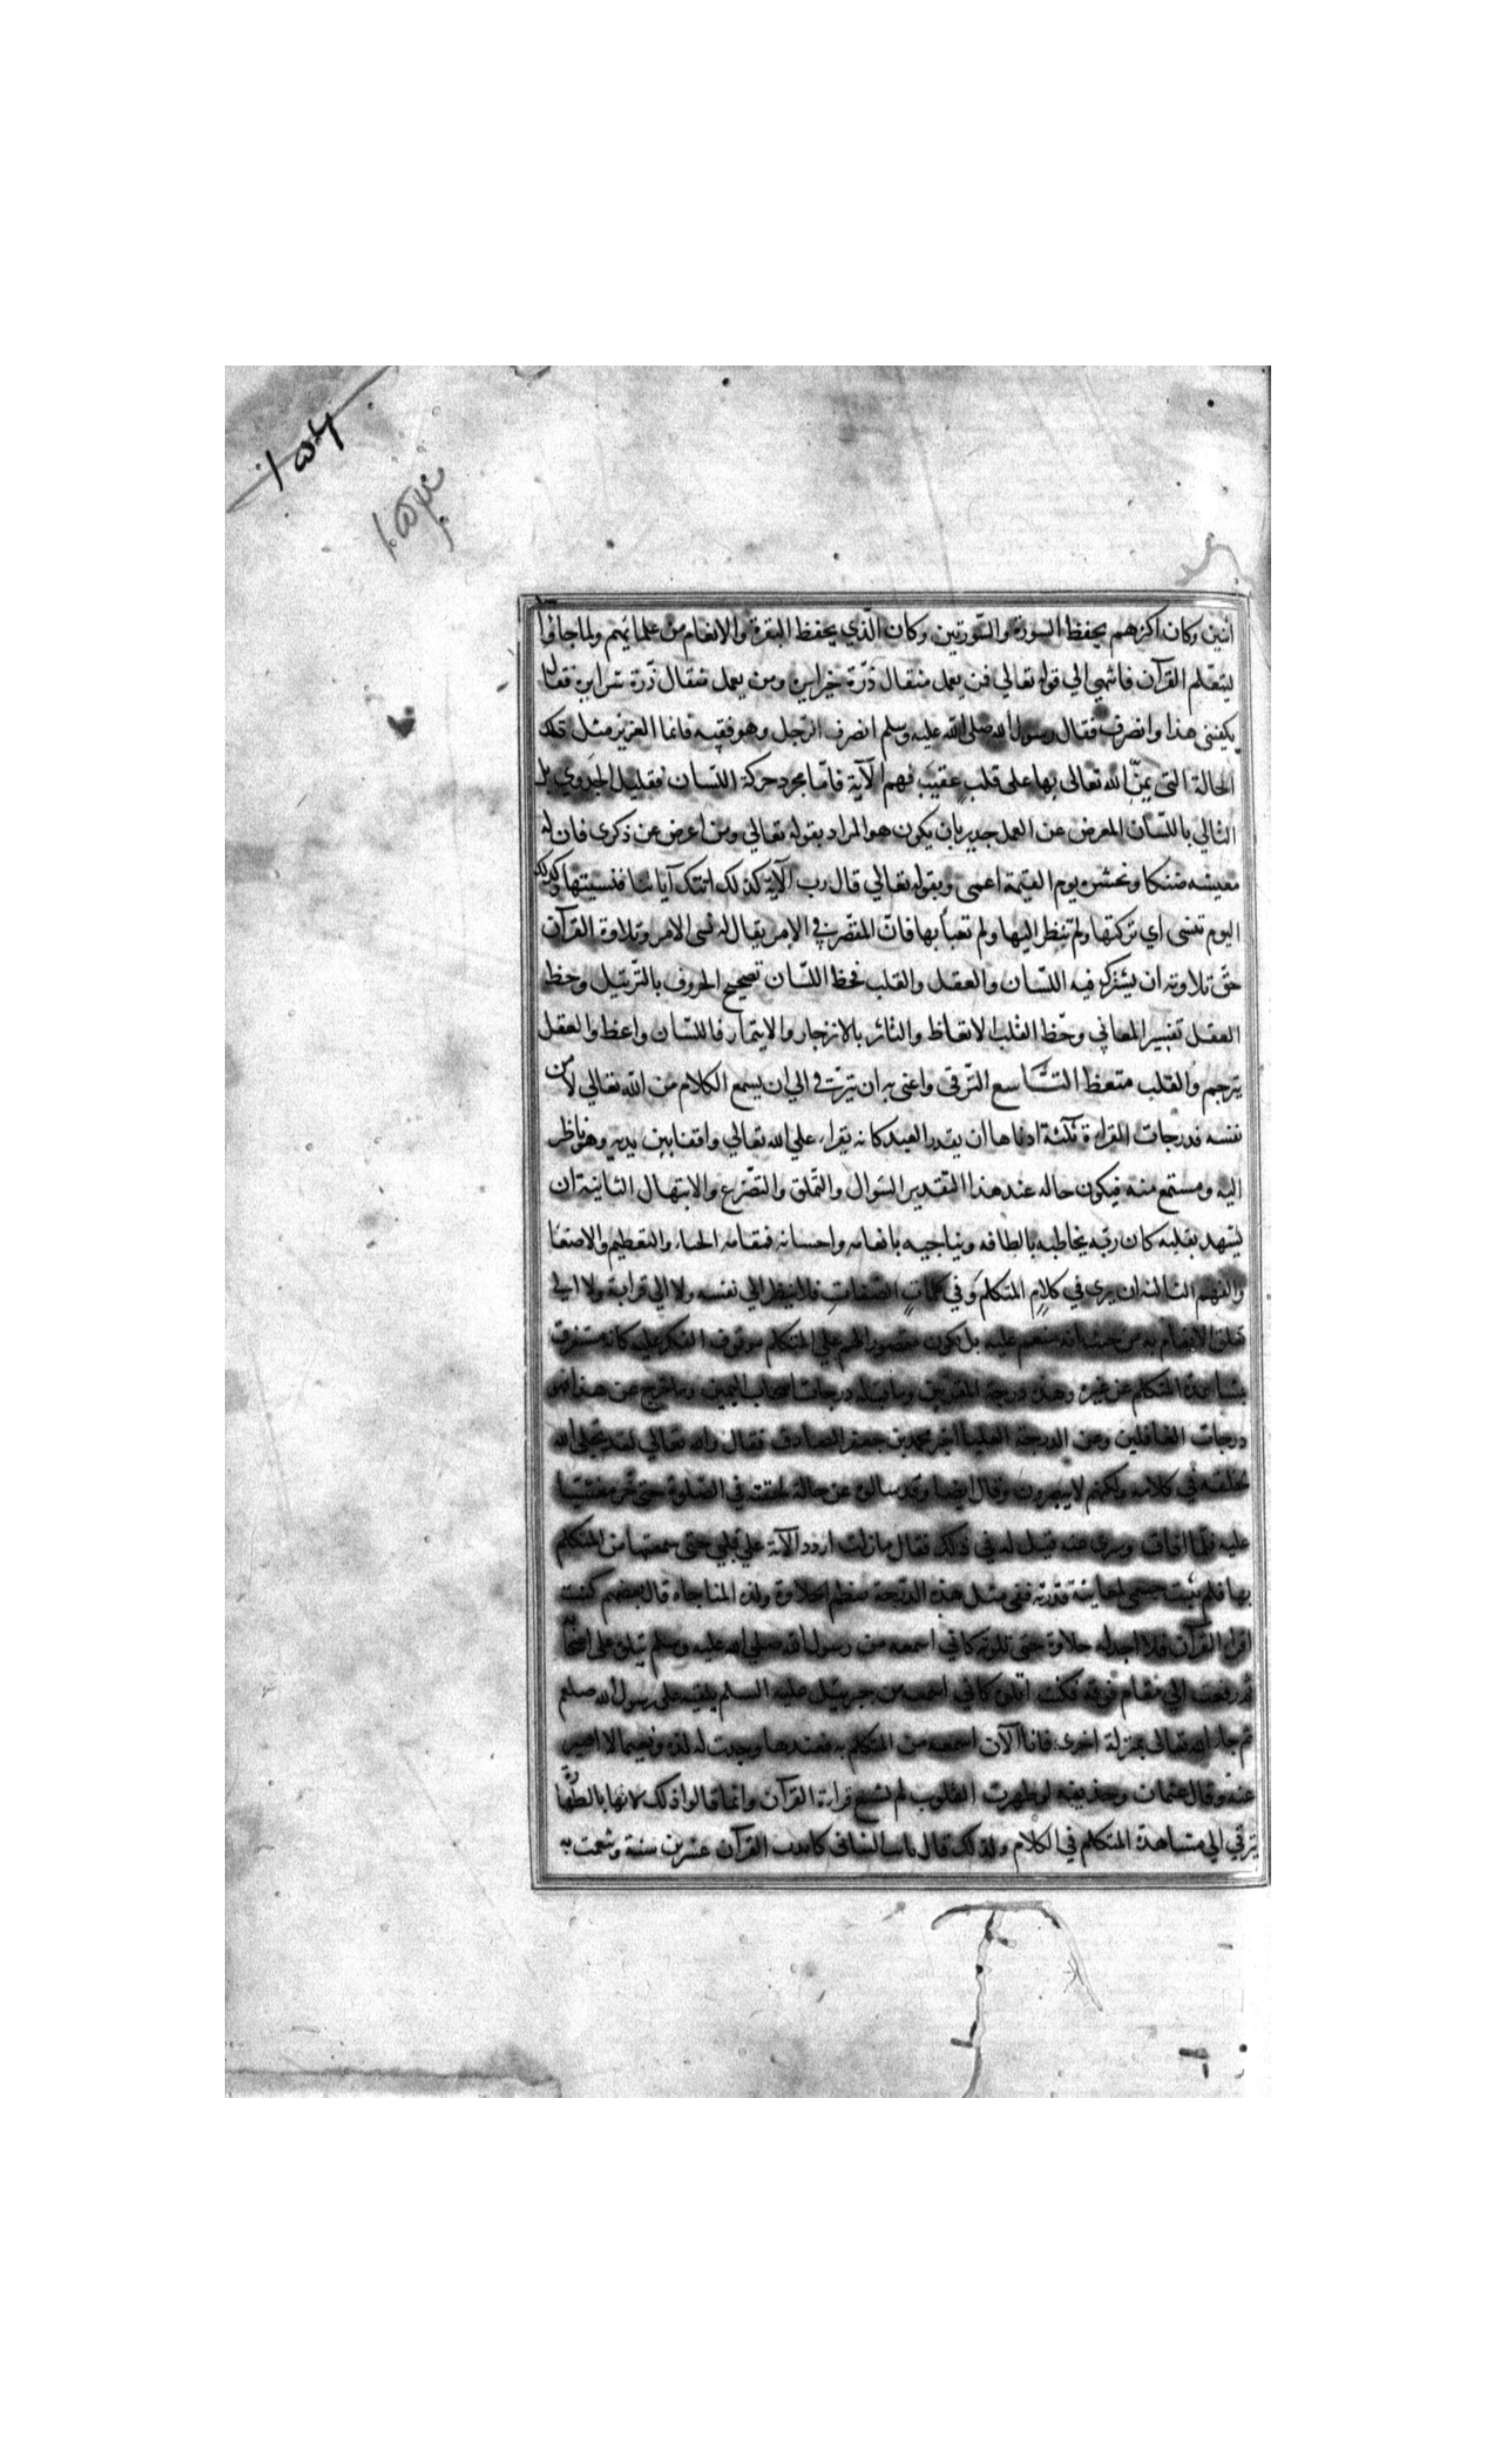 ١٥٦
١٥٣
اثنين وكان اكثرهم يحفظ السورة والسّورتين وكان الّذي يحفظ البقرة والانعام من علمائهم ولما جاؤا
ليتعّلم القرآن فانتهي الي قوله تعالي فمن يعمل مثقال ذرّة خيرا يره ومن يعمل مثقال ذرّة شرا يره فقال
يكفيني هذا وانصرف فقال رسول الله صلى الله عليه وسلم انصرف الرّجل وهو فقيه فانما العزيز مثل تلك
الحالة التى يمنّ الله تعالى بها على قلب عقيب فهم الآية فامّا مجرد حركة اللسان فقليل الجدوي بل
التالي باللسان المعرض عن العمل جدير بان يكون هو المراد بقوله تعالي ومن اعرض عن ذكرى فان له
معيشه ضنكا ونحشره يوم القيمة اعمى وبقوله تعالي قال رب الآية كذلك اتتك آياتنا فنسيتها وكذلك
اليوم تنسى اي تركتها ولم تنظر اليها ولم تعبأ بها فانّ المقصّر في الامر يقال له نسى الامر وتلاوة القرآن
حقّ تلاوته ان يشترك فيه اللسان والعقل والقلب فحظ اللسّان تصحيح الحروف بالتّرتيل وحظ
العقل تفسير المعاني وحّظ القلب الاتعاظ والتاثر بالانزجار والايتمار فاللسّان واعظ والعقل
يترجم والقلب متعظ التاسع التّرقى واعنى به ان يترقى في الي ان يسمع الكلام من الله تعالي لا من
نفسه فدرجات القراءة ثلثة ادناها ان يقدر العبد كانه يقراء علي الله تعالي واقفا بين يديه وهو ناظر
اليه ومستمع منه فيكون حاله عند هذا التّقدير السّوال والتّملق والتّضرّع والابتهال الثانية ان
يشهد بقلبه كان ربّه يخاطبه بالطافه ويناجيه بانعامه واحسانه فمقامه الحياء والتعظيم والاصغا
والفهم الثالثه ان يرى في كلام المتكلم وفي كلمات الصّفات فلا ينظر الي نفسه ولا الي قراءته ولا الي
تعلق الانعام به من حيث انه منعم عليه بل يكون مقصور الهم علي المتكلم موقوف الفكر عليه كانه مستغرق
بمشاهدة المتكلم عن غيره وهذه درجة المقربين وما قبله درجات اصحاب اليمين وما خرج عن هذا فهى
درجات الغافلين وعن الدرجة العليا اخبر محمد بن جعفر الصادق فقال والله تعالي لقد تجلى الله
لخلقه في كلامه ولكنهم لا يبصرون وقال ايضا وقد سالوه عن حالة لحقته في الصّلوة حتى خر مغشيا
عليه فلمّا افاق وسرى عنه قيل له في ذلك فقال ما زلت اردد الآية علي قلبي حتى سمعتها من المتكلم
بها فلم يثبت جسمى لمعاينة قدرته ففى مثل هذه الدّرجة تعظم الحلاوة ولذة المناجاه قال بعضهم كنت
اقراء القرآن فلا اجد له حلاوة حتى تلوته كاني اسمعه من رسول الله صلي الله عليه وسلم يتلوه على اصحابه
ثم رفعت الي مقام فوقه فكنت اتلوه كاني اسمعه من جبرئيل عليه السلم يلقيه على رسول الله صلعم
ثم جاء الله تعالى بمنزلة اخرى فانا الآن اسمعه من المتكلم به فعندها وجدت له لذة ونعيما لا اصبر
عنه وقال عثمان وحذيفه لو طهرت القلوب لم تشبع قراءة القرآن وانما قالوا ذلك لانها بالطّهارة
ترقي الي مشاهدة المتكلم في الكلام ولذلك قال كابدت القرآن عشرين سنة وتنعمت به